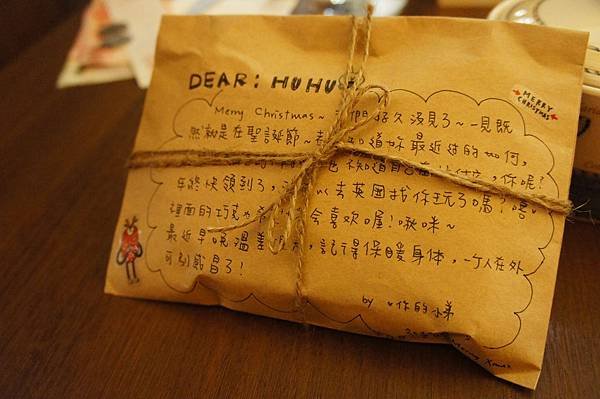 DEAR: HUHU
MERRY
CHRISTMAS~
Merry Christmas~ 們好久沒見了~一見既
然就是在聖誕節~ 知道妳最近過的如何,
也不知道自己 你呢!
年終快領到了, 以去英國找你玩了嗎?嘻~
裡面的巧克 會喜歡喔!啾咪~
最近早晚溫差 ,記得保暖身体,一个人在外
可別感冒了!
by 你的小弟